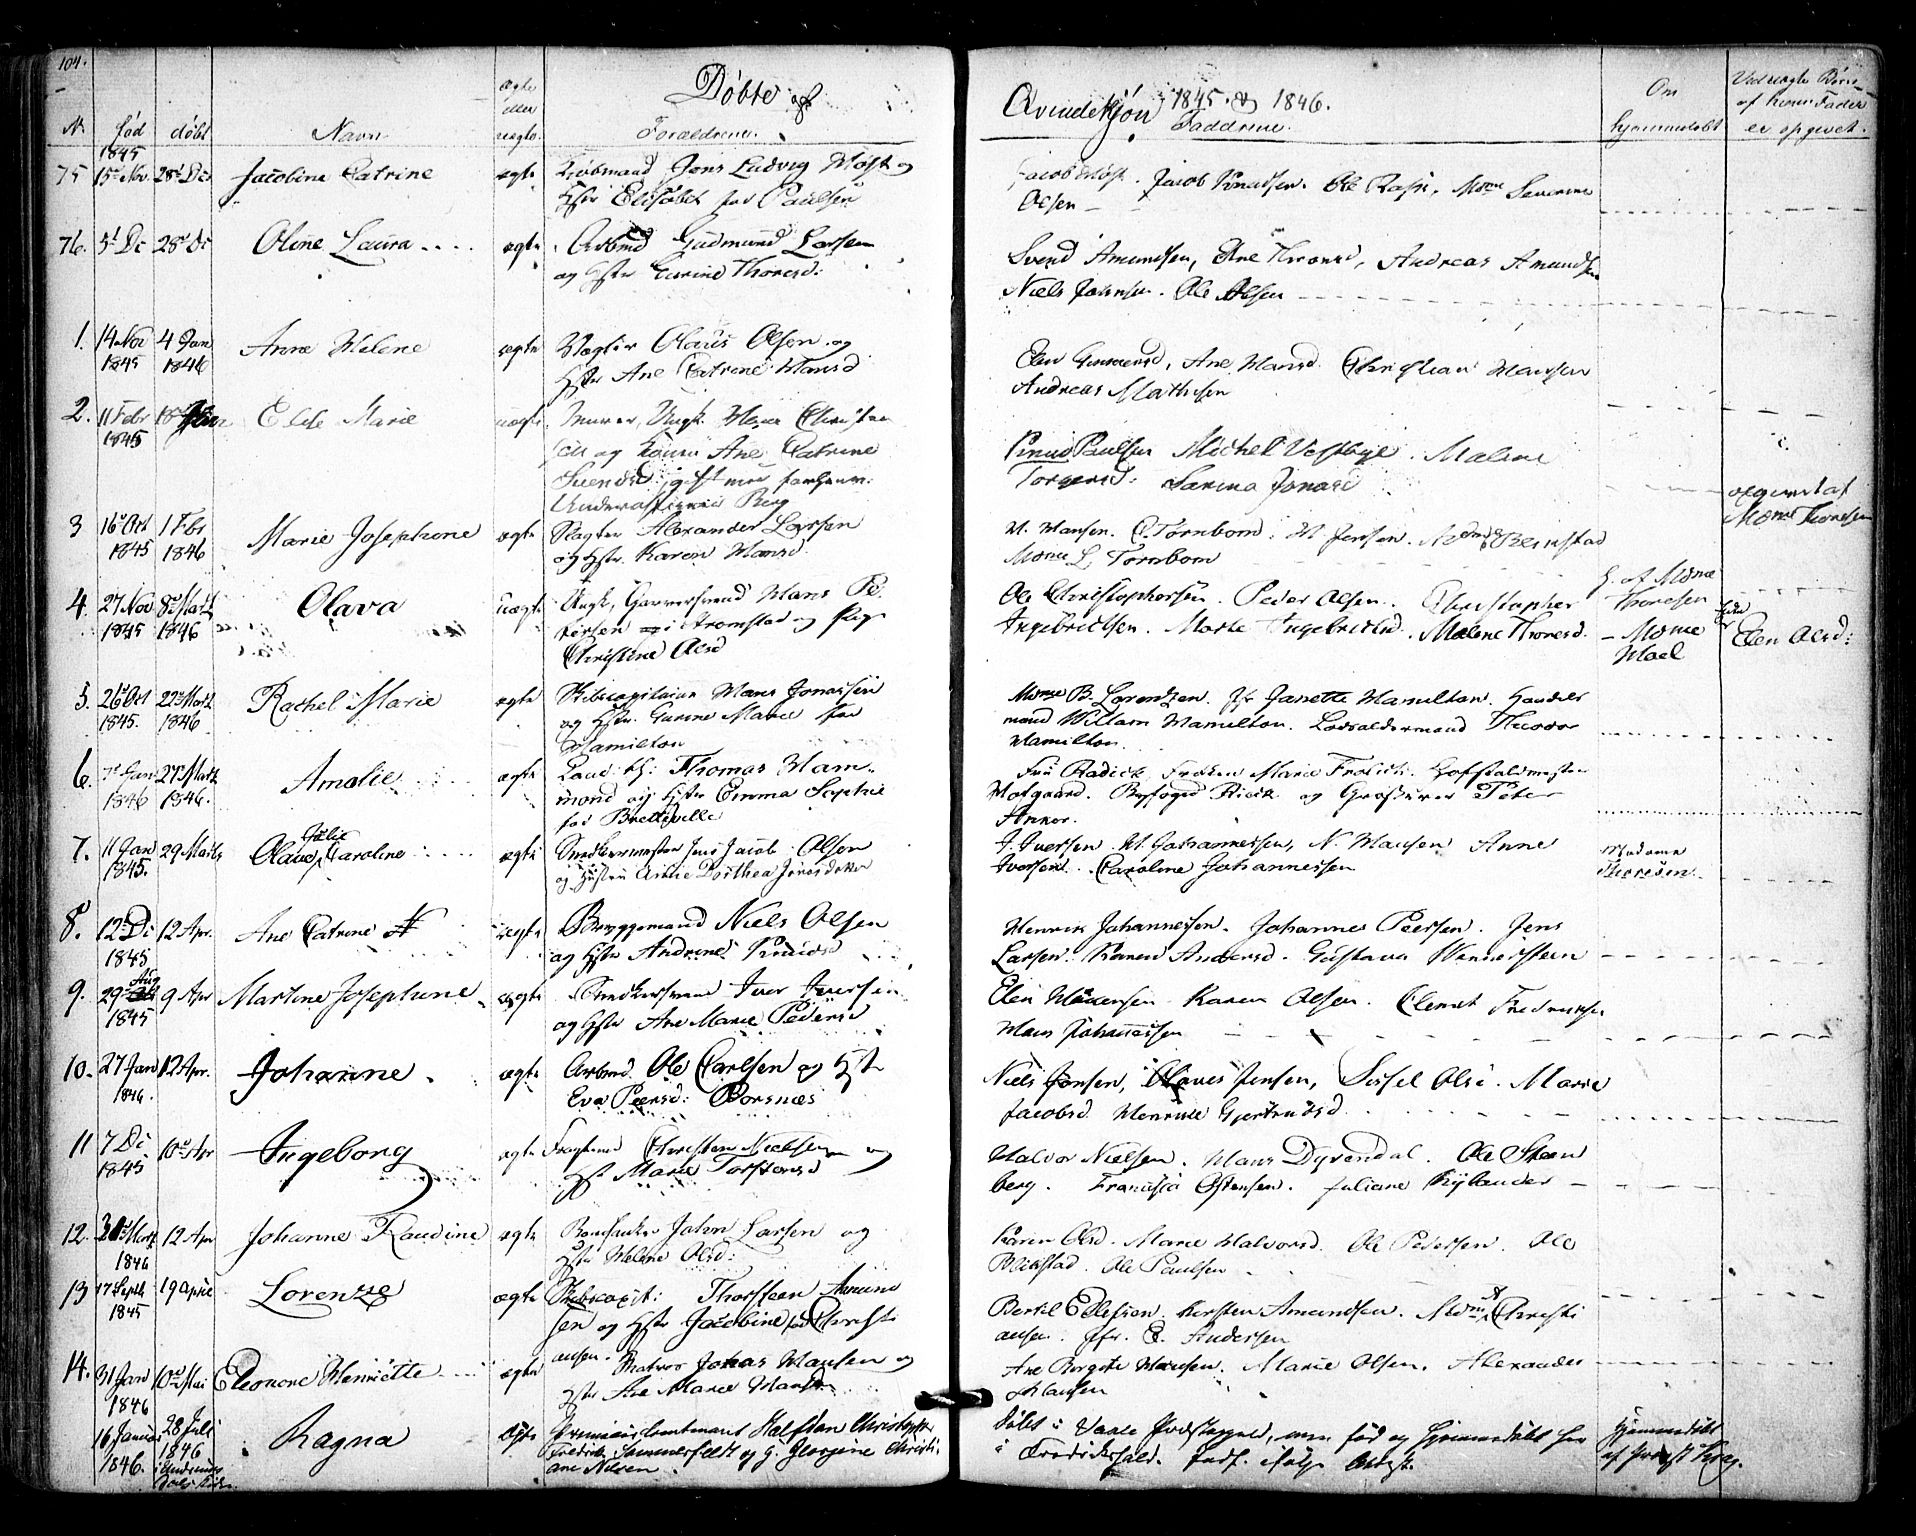 104.
Døbte af Qvindekjøn 1845 & 1846.
No født døbt Navn ægte eller uægte Forældrene. Faddrene. Om hjemmedøbt Ved uægte Børn af hvem Fader er opgivet.
1845
75 15de Nov. 28de Dec Jacobine Catrine ægte Kiøbmand Jens Ludvig Møst og
Hstr Elisabet fød Paulsen
Jacob Møst. Jacob Knudsen. Ole Rasm. Mdme Severine
Olsen
76. 5t De 28de De Oline Laura ægte Arbmd Gudmund Larsen
og Hstr Gurine Thoresd:
Svend Amundsen, Ane Thoresd, Andreas Amundsen
Niels Johnsen. Ole Olsen
1. 14 Nov 1845 4 Jan 1846 Anne Helene ægte Vægter Olaus Olsen og
Hstr Ane Catrine Hansd
Elen Gunnersd, Ane Hansd. Christian Hansen
Andreas Mathisen
2. 11 Febr 1845 18de Jan Elise Marie uægte Murer, Ungk. Hans Christen
sen og Kone Ane Catrine
Svendsd; gift med
Berg
Paulsen Michel Vestbye. Malene
Torgersd: Sarina Jonasd
opgivet af
Mdme Thoresen
3 16de Oct 1845 1 Febr 1846 Marie Josephine ægte Slagter Alexander Larsen
og Hstr Karen Hansd
H. Hansen. C. Tornbom. H Jensen. Mdme Beinstad
Mdme L. Tornbom
4. 27 Nov 1845 8de Martz 1846 Olava uægte Ungk, Garversvend Hans Pe
tersen i Strømstad og Pige
Christine Olsd
Ole Christophersen. Peder Olsen. Christopher
Ingebrictsen. Marte Ingebrictsd. Malene Thoresd.
H. af Mdme
Thoresen
– Mdme
Moel
Elen Olsd:
5. 26de Oct 1845. 22de Martz 1846 Rachel Marie ægte Skibscapitain Hans Jonassen
og Hstr. Gurine Marie fød
Hamilton
Mdme B. Lorentzen. Jfr Janette Hamilton. Handels
mand William Hamilton. Lodsoldermand Theodor
Hamilton.
6. 7de Jan 1846 27de Martz 1846. Amalie ægte Cand. th: Thomas Ham
mond og Hstr Emma Sophie
fød Brettevelle
Frøken Marie Frolich. Hofstaldmester
Hofgaard. Byfoged og Grosserer Peter
Anker.
7. 11 Jan 1845. 29 Martz Olaue Julie Caroline ægte Snedkermester Jens Jacob Olsen
og Hustru Anne Dorthea Jensdatter
J. Iversen. H. Johannessen, N. Hansen Anne
Iversen. Caroline Johannessen
Madame
Thoresen
8. 12te De 1845 12 Apr. Ane Catrine ægte Bryggemand Niels Olsen
og Hstr Andrine Knudsd
Henrik Johannessen. Johannes Peersen. Jens
Larsen. Karen Andersd. Gustava Wennersteen
9. 29de Aug 1845 9 Apr Martine Josephine ægte Snedkersvend Iver Iversen
og Hstr Ane Marie Pedersd
Elen Hansen. Karen Olsen. Clemet Fredriksen
Hans Johannessen
10. 27 Jan 1846. 12 Apr. Johanne ægte Arbmd. Ole Carlsen og Hst
Eva Peersd: Borsnæs
Niels Jensen, Olaves Jensen, Sissel Olsd. Marie
Jacobsd. Henrikke Gjertrudsd
11 7 De 1845 10de Apr Ingeborg ægte Fragtmd Christen Nielsen og
Hst Marie Torstensd
Halvor Nielsen. Hans Dyrendal. Ole Steen
berg. Francisca Østensen. Juliane Rylander
12. 31de Martz 1846 12 Apr Johanne Randine ægte John Larsen og
Hstr Helene Olsd:
Karen Olsd. Marie Halvorsd. Ole Pedersen. Ole
Blikstad. Ole Paulsen
13 17 Septb 1845 19 April Lorenze ægte Skibscapit: Thorsteen Amund
sen og Hstr Jacobine fød Christi
ansen.
Bertel Ellefsen. Kirsten Amundsen. Mdme A Christi
ansen. Jfr. E. Andersen
14. 31 Jan 1846 10de Mai Eleonore Henriette ægte Matros Johas Hansen og
Hstr Ane Marie Hansd
Ane Borgitte Hansen. Marie Olsen. Alexander
Hansen
16 Januar 1846. 28 Juli 1846 Ragna ægte Premierlieutenant Halfdan Christopher
Fredrik Sommerfeldt og H. Georgine Christi
ane Nilsen.
Døbt i Vaale Præstegjeld, men fød og hjemmedøbt her
i Fredrikshald. Indf. ifølge Attest.
Hjemmedøbt
af Provst